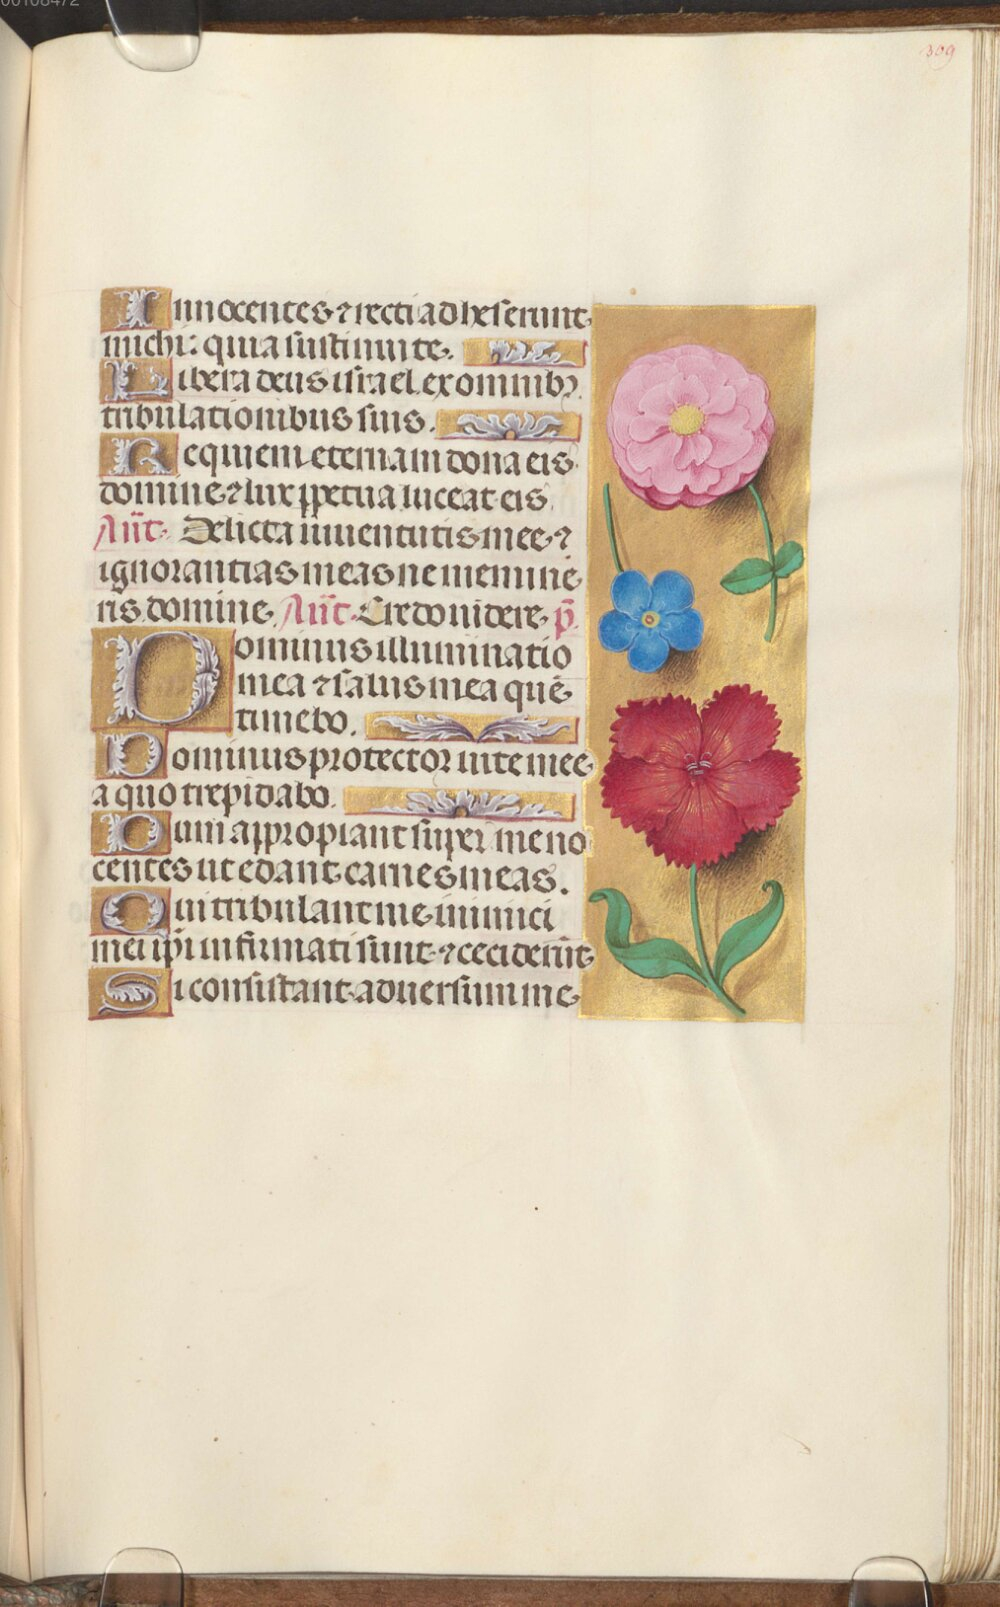 00108472
309
Innocentes ⁊ recti adheserunt
michi: quia sustinui te.
Libera deus israel ex omnibꝫ
tribulationibus suis.
Requiem eternam dona eis
domine ⁊ lux ꝑpetua luceat eis
An̄t. Delicta iuuentutis mee ⁊
ignorantias meas ne meminē
ris domine. An̄t. Credo videre. p̄
Dominus illuminatio
mea ⁊ salus mea quē
timebo.
Dominus protector vite mee
a quo trepidabo.
Dum appropiant super me no
centes ut edant carnes meas.
Qui tribulant me inimici
mei ip̄i infirmati sunt ⁊ ceciderūt
Si consistant aduersum me